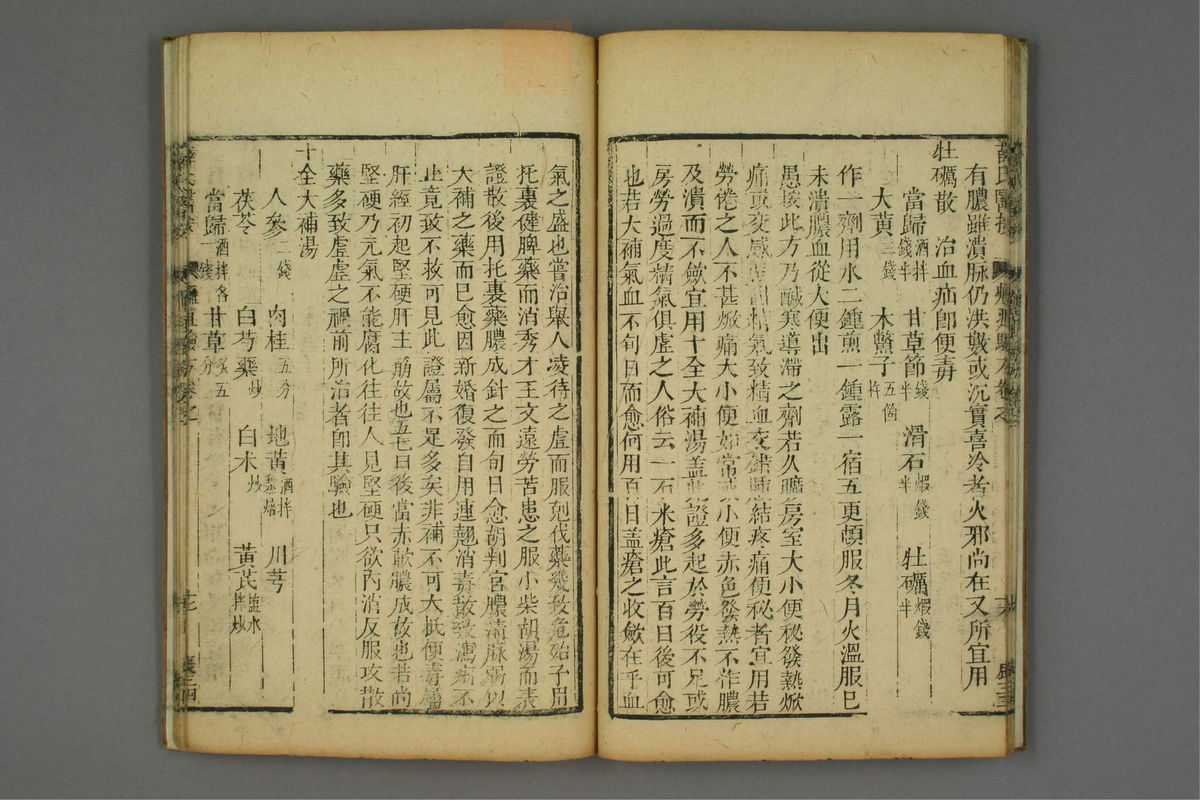 有膿雖潰脉仍洪數或沉實喜冷者火邪尚在又所宜用
牡礪散　治血疝卽便毒
當歸酒拌錢半　甘草節錢半　滑石煆錢半　牡礪煆錢半
大黄三錢　木鱉子五箇杵
作一劑用水二鍾煎一鍾露一宿五更頓服冬月火溫服巳
未潰膿血從大便出
愚按此方乃鹹寒導滯之劑若久曠房室大小便秘發熱焮
痛或交感精氣致精血交結疼痛便秘者宜用若
勞倦之人不甚焮痛大小便如常或小便赤色發熱不作膿
及潰而不斂宜用十全大補湯盖此證多起於勞役不足或
房勞過度精氣俱虛之人俗云一石米瘡此言百日後可愈
也若大補氣血不旬日而愈何用百日盖瘡之收斂在乎血
氣之盛也嘗治舉人凌待之虛而服剋伐藥幾致危殆予用
托裏健脾藥而消秀才王文遠勞苦患之服小柴胡湯而表
證散後用托裏藥膿成針之而旬日愈胡判官膿清脉弱以
大補之藥而巳愈因新婚復發自用連翹消毒散致瀉痢不
止竟致不救可見此證屬不足多矣非補不可大抵便毒屬
肝經初起堅硬肝主筋故也五七日後當赤軟膿成故也若尚
堅硬乃元氣不能腐化往往人見堅硬只欲內消反服攻散
藥多致虛虛之禍前所治者卽其驗也
十全大補湯
人參二錢　肉桂五分　地黃酒拌蒸焙　川芎
茯苓　白芍藥炒　白朮炒　黃芪鹽水拌炒
當歸酒拌各一錢　甘草炙五分